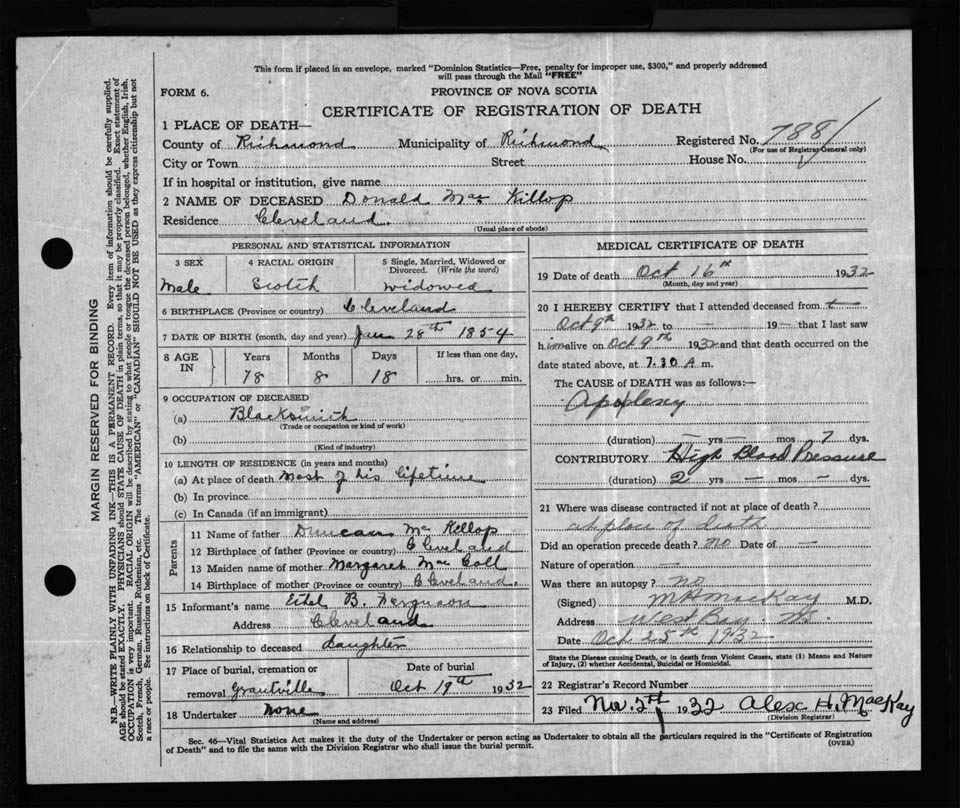 This form if placed in an envelope, marked "Dominion Statistics—Free, penalty for improper use, $300," and properly addressed
will pass through the Mail "FREE"
FORM 6.
PROVINCE OF NOVA SCOTIA
CERTIFICATE OF REGISTRATION OF DEATH
1 PLACE OF DEATH—
County of Richmond Municipality of Richmond Registered No. 788
(For use of Registrar General only)
City or Town Street House No.
If in hospital or institution, give name
2 NAME OF DECEASED Donald Mac Killop
Residence Cleveland.
(Usual place of abode)
PERSONAL AND STATISTICAL INFORMATION
3 SEX 4 RACIAL ORIGIN 5 Single, Married, Widowed or Divorced. (Write the word)
Male Scotch Widowed
6 BIRTHPLACE (Province or country) Cleveland
7 DATE OF BIRTH (month, day and year) Jan 28th 1854
8 AGE IN Years Months Days If less than one day,
78 8 18 hrs. or min.
9 OCCUPATION OF DECEASED
(a) Blacksmith
(Trade or occupation or kind of work)
(b)
(Kind of industry)
10 LENGTH OF RESIDENCE (in years and months)
(a) At place of death Most of his lifetime
(b) In province
(c) In Canada (if an immigrant)
Parents
11 Name of father Duncan Mc Killop
12 Birthplace of father (Province or country) Cleveland
13 Maiden name of mother Margaret Mac Coll
14 Birthplace of mother (Province or country) Cleveland.
15 Informant's name Ethel B. Ferguson
Address Cleveland
16 Relationship to deceased daughter
17 Place of burial, cremation or Date of burial
removal Grantville Oct 19th 1932
18 Undertaker None
(Name and address)
MEDICAL CERTIFICATE OF DEATH
19 Date of death Oct 16th 1932
(Month, day and year)
20 I HEREBY CERTIFY that I attended deceased from
Oct 9th 1932 to — 19— that I last saw
him alive on Oct 9th 1932 and that death occurred on the
date stated above, at 7.30 A m.
The CAUSE of DEATH was as follows:—
Apoplexy
(duration) — yrs — mos 7 dys.
CONTRIBUTORY High Blood Pressure
(duration) 2 yrs — mos — dys.
21 Where was disease contracted if not at place of death?
at place of death
Did an operation precede death? no Date of —
Nature of operation —
Was there an autopsy? no
(Signed) MacKay M.D.
Address West Bay
Date Oct 25th 1932
State the Disease causing Death, or in death from Violent Causes, state (1) Means and Nature
of Injury, (2) whether Accidental, Suicidal or Homicidal.
22 Registrar's Record Number
23 Filed Nov. 2nd 1932 Alex H. MacKay
(Division Registrar)
Sec. 46—Vital Statistics Act makes it the duty of the Undertaker or person acting as Undertaker to obtain all the particulars required in the "Certificate of Registration
of Death" and to file the same with the Division Registrar who shall issue the burial permit. (OVER)
MARGIN RESERVED FOR BINDING
N.B.—WRITE PLAINLY WITH UNFADING INK—THIS IS A PERMANENT RECORD. Every item of information should be carefully supplied.
AGE should be stated EXACTLY. PHYSICIANS should STATE CAUSE OF DEATH in plain terms, so that it may be properly classified. Exact statement of
OCCUPATION is very important. RACIAL ORIGIN will be described by stating to what people or tongue the deceased person belonged, whether English, Irish,
Scotch, French, German, Russian, Ruthenian, etc. The terms "AMERICAN" or "CANADIAN" SHOULD NOT BE USED as they express citizenship but not
a race or people. See instructions on back of Certificate.